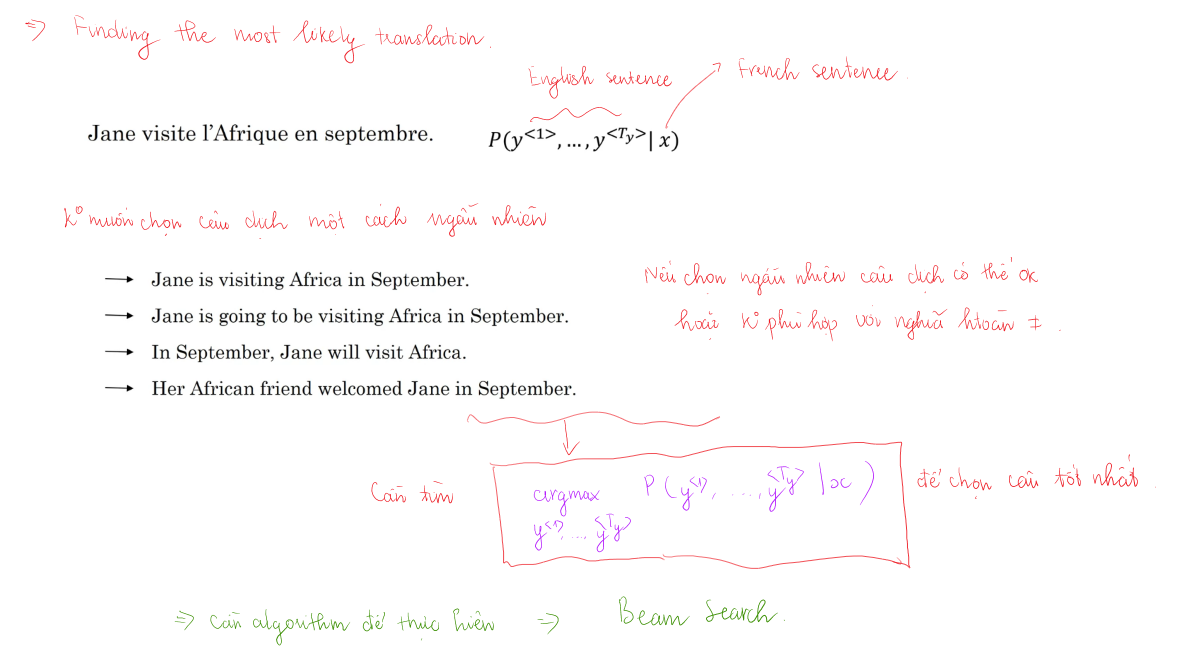 ⇒ Finding the most likely translation.
English sentence
French sentence.
Jane visite l'Afrique en septembre.
P(y<1>, …, y<Ty>| x)
K° muốn chọn câu dịch một cách ngẫu nhiên
→ Jane is visiting Africa in September.
→ Jane is going to be visiting Africa in September.
→ In September, Jane will visit Africa.
→ Her African friend welcomed Jane in September.
Nếu chọn ngẫu nhiên câu dịch có thể ok
hoặc k° phù hợp với nghĩa htoàn ≠.
Cần tìm
argmax P(y<1>, ..., y<Ty> | x)
y<1>, ... y<Ty>
để chọn câu tốt nhất.
⇒ Cần algorithm để thực hiện ⇒ Beam Search.